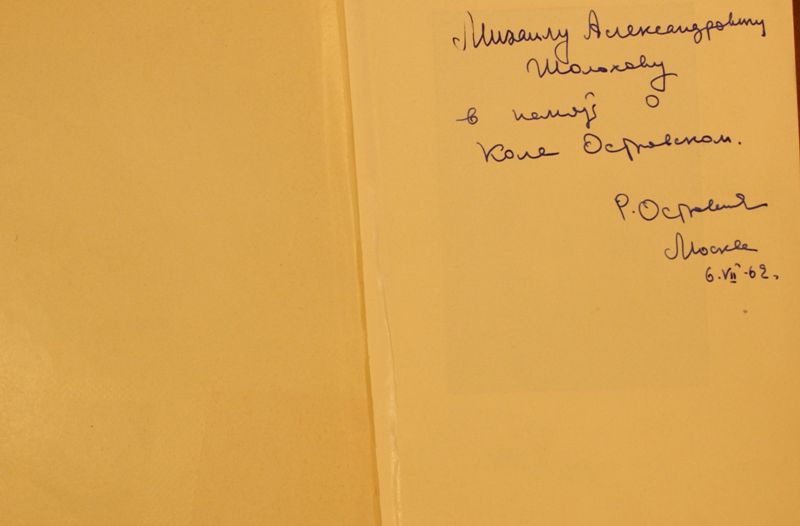 Михаилу Александровичу
Шолохову
в память о
Коле Островском.
Р. Островская
Москва
6.VII-62.